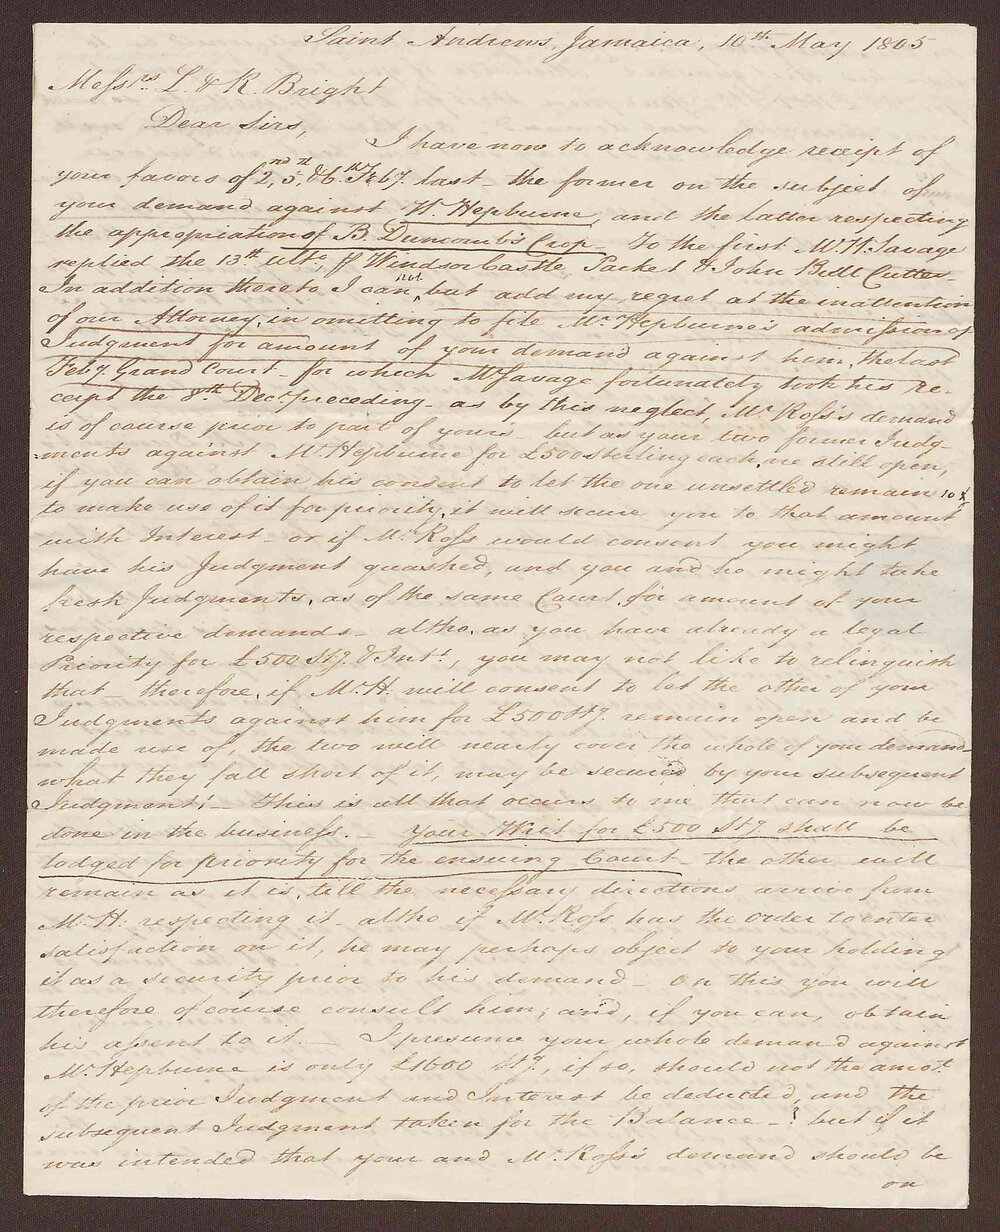 Saint Andrews, Jamaica, 10th May 1805
Messrs. L. & R. Bright
Dear Sirs,
I have now to acknowledge receipt of
your favors of 2nd, 5th, & 6th Feby. last – the former on the subject of
your demand against W. Hepburne, and the latter respecting
the appropriation of B. Duncomb's Crop – To the first Mr. W. Savage
replied the 13th ulto. P Windsor Castle Packet & John Bull Cutter –
In addition thereto I can but add my regret at the inattention
of our Attorney, in omitting to file Mr. Hepburne's admission of
Judgment for amount of your demand against him, the last
Feby. Grand Court – for which Mr. Savage fortunately took his re-
ceipt the 8th Decr. preceding – as by this neglect, Mr. Ross's demand
is of course prior to part of yours – but as your two former Judg-
ments against Mr. Hepburne for £500 sterling each, are still open,
if you can obtain his consent to let the one unsettled remain so &
to make use of it for priority, it will secure you to that amount
with Interest – or if Mr. Ross would consent you might
have his Judgment quashed, and you and he might take
fresh Judgments, as of the same Court, for amount of your
respective demands – altho, as you have already a legal
Priority for £500 Stg. & Intt., you may not like to relinquish
that – therefore, if Mr. H. will consent to let the other of your
Judgments against him for £500 Stg. remain open and be
made use of, the two will nearly cover the whole of your demand –
what they fall short of it, may be secured by your subsequent
Judgment! – This is all that occurs to me that can now be
done in the business. – Your Writ for £500 Stg shall be
lodged for priority for the ensuing Court – the other will
remain as it is, till the necessary directions arrive from
Mr. H. respecting it – altho if Mr. Ross has the order to enter
satisfaction on it, he may perhaps object to your holding
it as a security prior to his demand – on this you will
therefore of course consult him; and, if you can, obtain
his assent to it. – I presume your whole demand against
Mr. Hepburne is only £1600 Stg., if so, should not the amot.
of the prior Judgment and Interest be deducted, and the
subsequent Judgment taken for the Balance –? but if it
was intended that your and Mr. Ross's demand should be
on